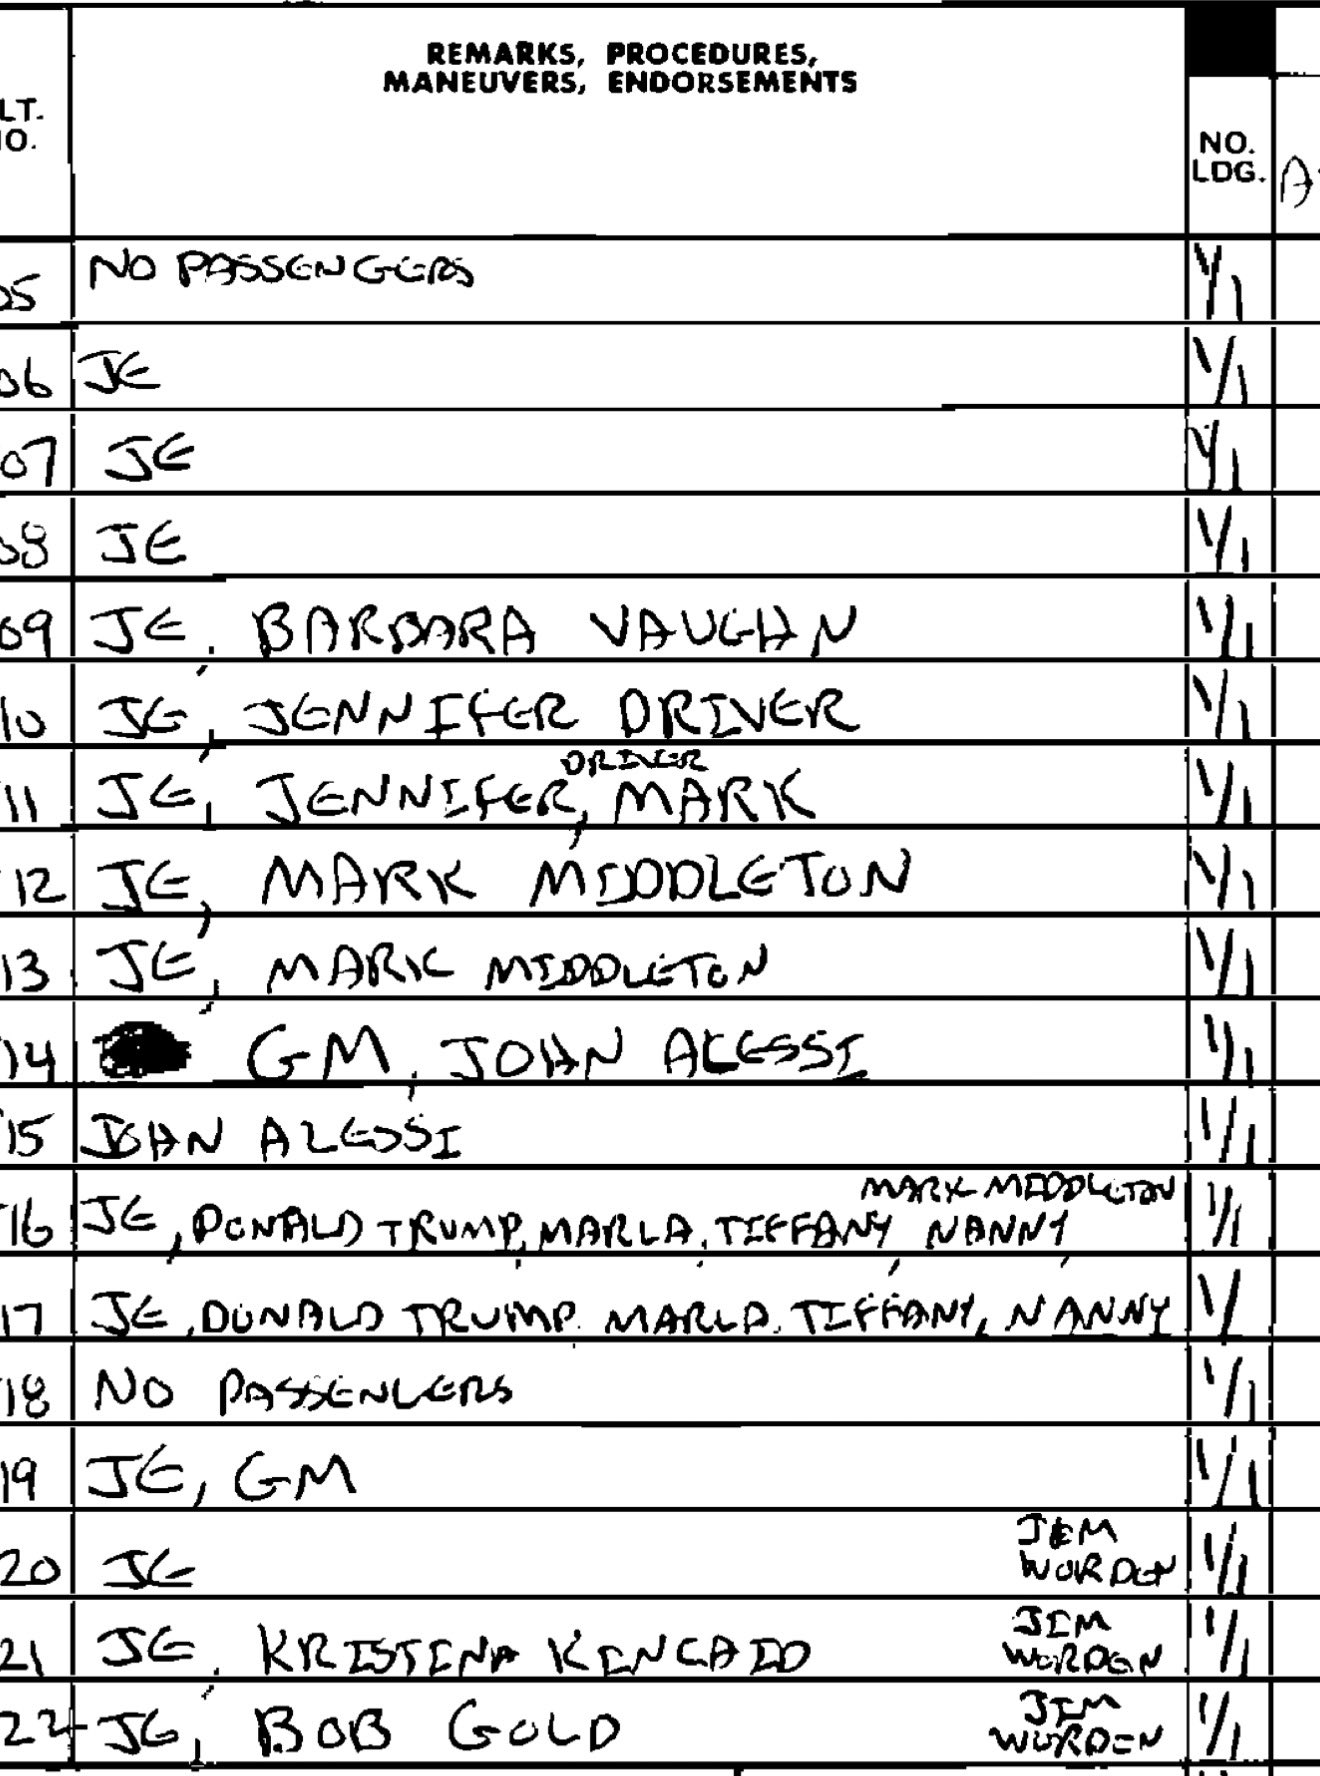 REMARKS, PROCEDURES,
MANEUVERS, ENDORSEMENTS
LT.
NO.
LDG.
05 NO PASSENGERS 1/1
06 JE 1/1
07 JE 1/1
08 JE 1/1
09 JE, BARBARA VAUGHN 1/1
10 JE, JENNIFER DRIVER 1/1
DRIVER
11 JE, JENNIFER, MARK 1/1
12 JE, MARK MIDDLETON 1/1
13 JE, MARK MIDDLETON 1/1
14 GM, JOHN ALESSI 1/1
15 JOHN ALESSI 1/1
MARK MIDDLETON
16 JE, DONALD TRUMP, MARLA, TIFFANY, NANNY 1/1
17 JE, DONALD TRUMP, MARLA, TIFFANY, NANNY 1/
18 NO PASSENGERS 1/1
19 JE, GM 1/1
JIM
20 JE WORDEN 1/1
JIM
21 JE, KRISTINA WORDEN 1/1
JIM
22 JE, BOB GOLD WORDEN 1/1